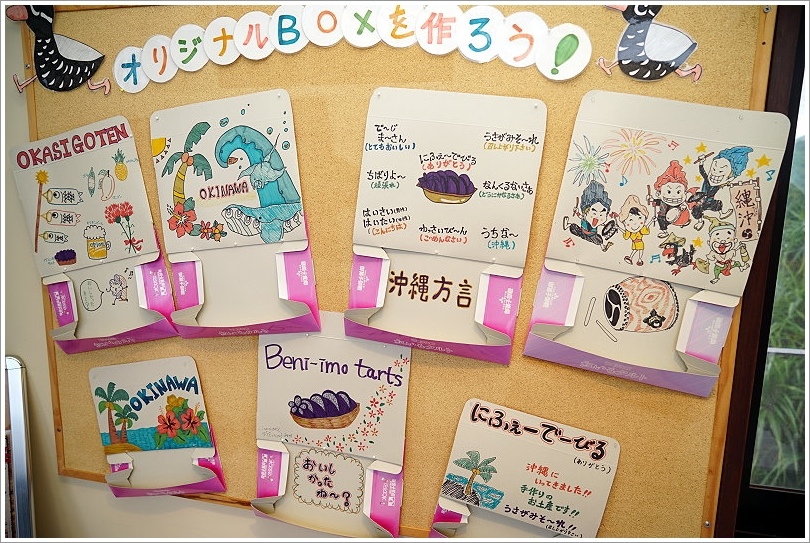 オリジナルBOXを作ろう!
OKASIGOTEN
OKINAWA
で〜じ
ま〜さん
(とてもおいしい)
うさがみそ〜れ
(召し上がり下さい)
にふぇ〜でーびる
(ありがとう)
ちばりよ〜
(頑張れ)
なんくるないさぁ
はいさい
はいたい
(こんにちは)
わっさいび〜ん
(ごめんなさい)
うちな〜
(沖縄)
沖縄方言
沖縄
OKINAWA
Beni-imo tarts
おいし
かった
ね〜?
にふぇーでーびる
(ありがとう)
沖縄に
いってきました!!
手作りの
お土産です!!
うさがみそ〜れ!!